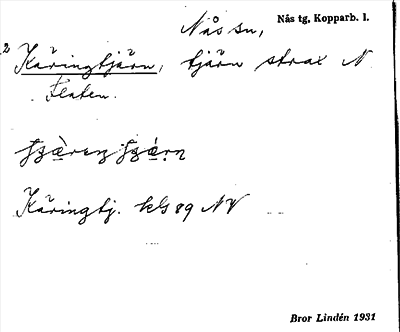 Nås sn, Nås tg, Kopparb. l.
2 Käringtjärn, tjärn strax N
Flaten.
Käringtj. kbl 89 NV
Bror Lindén 1931